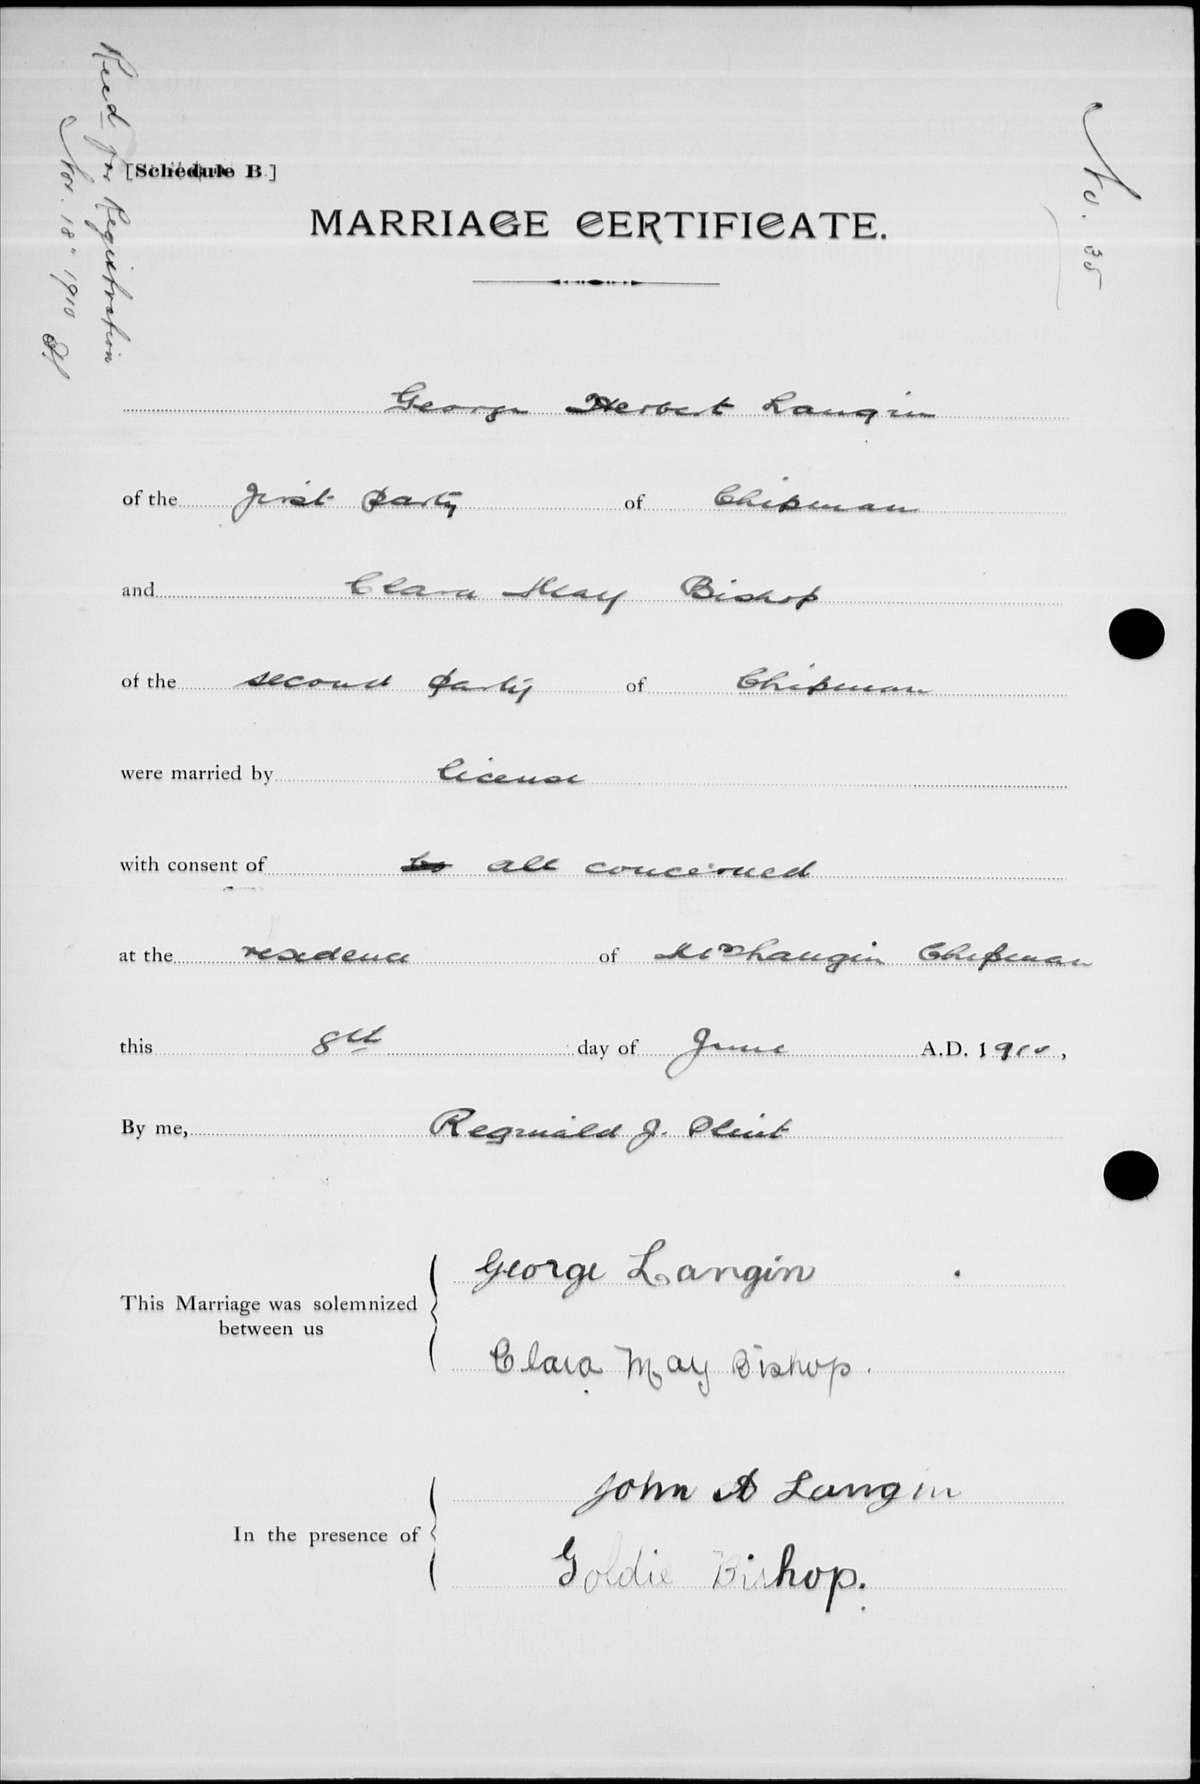 Recd for Registration
Nov. 18" 1910
No. 35
[Schedule B.]
MARRIAGE CERTIFICATE.
George Herbert Langin
of the first party of Chipman
and Clara May Bishop
of the second party of Chipman
were married by license
with consent of all concerned
at the residence of Langin Chipman
this 8th day of June A.D. 1910,
By me, Reginald J. Plint
This Marriage was solemnized
between us
George Langin
Clara May Bishop.
In the presence of
John A Langin
Goldie Bishop.